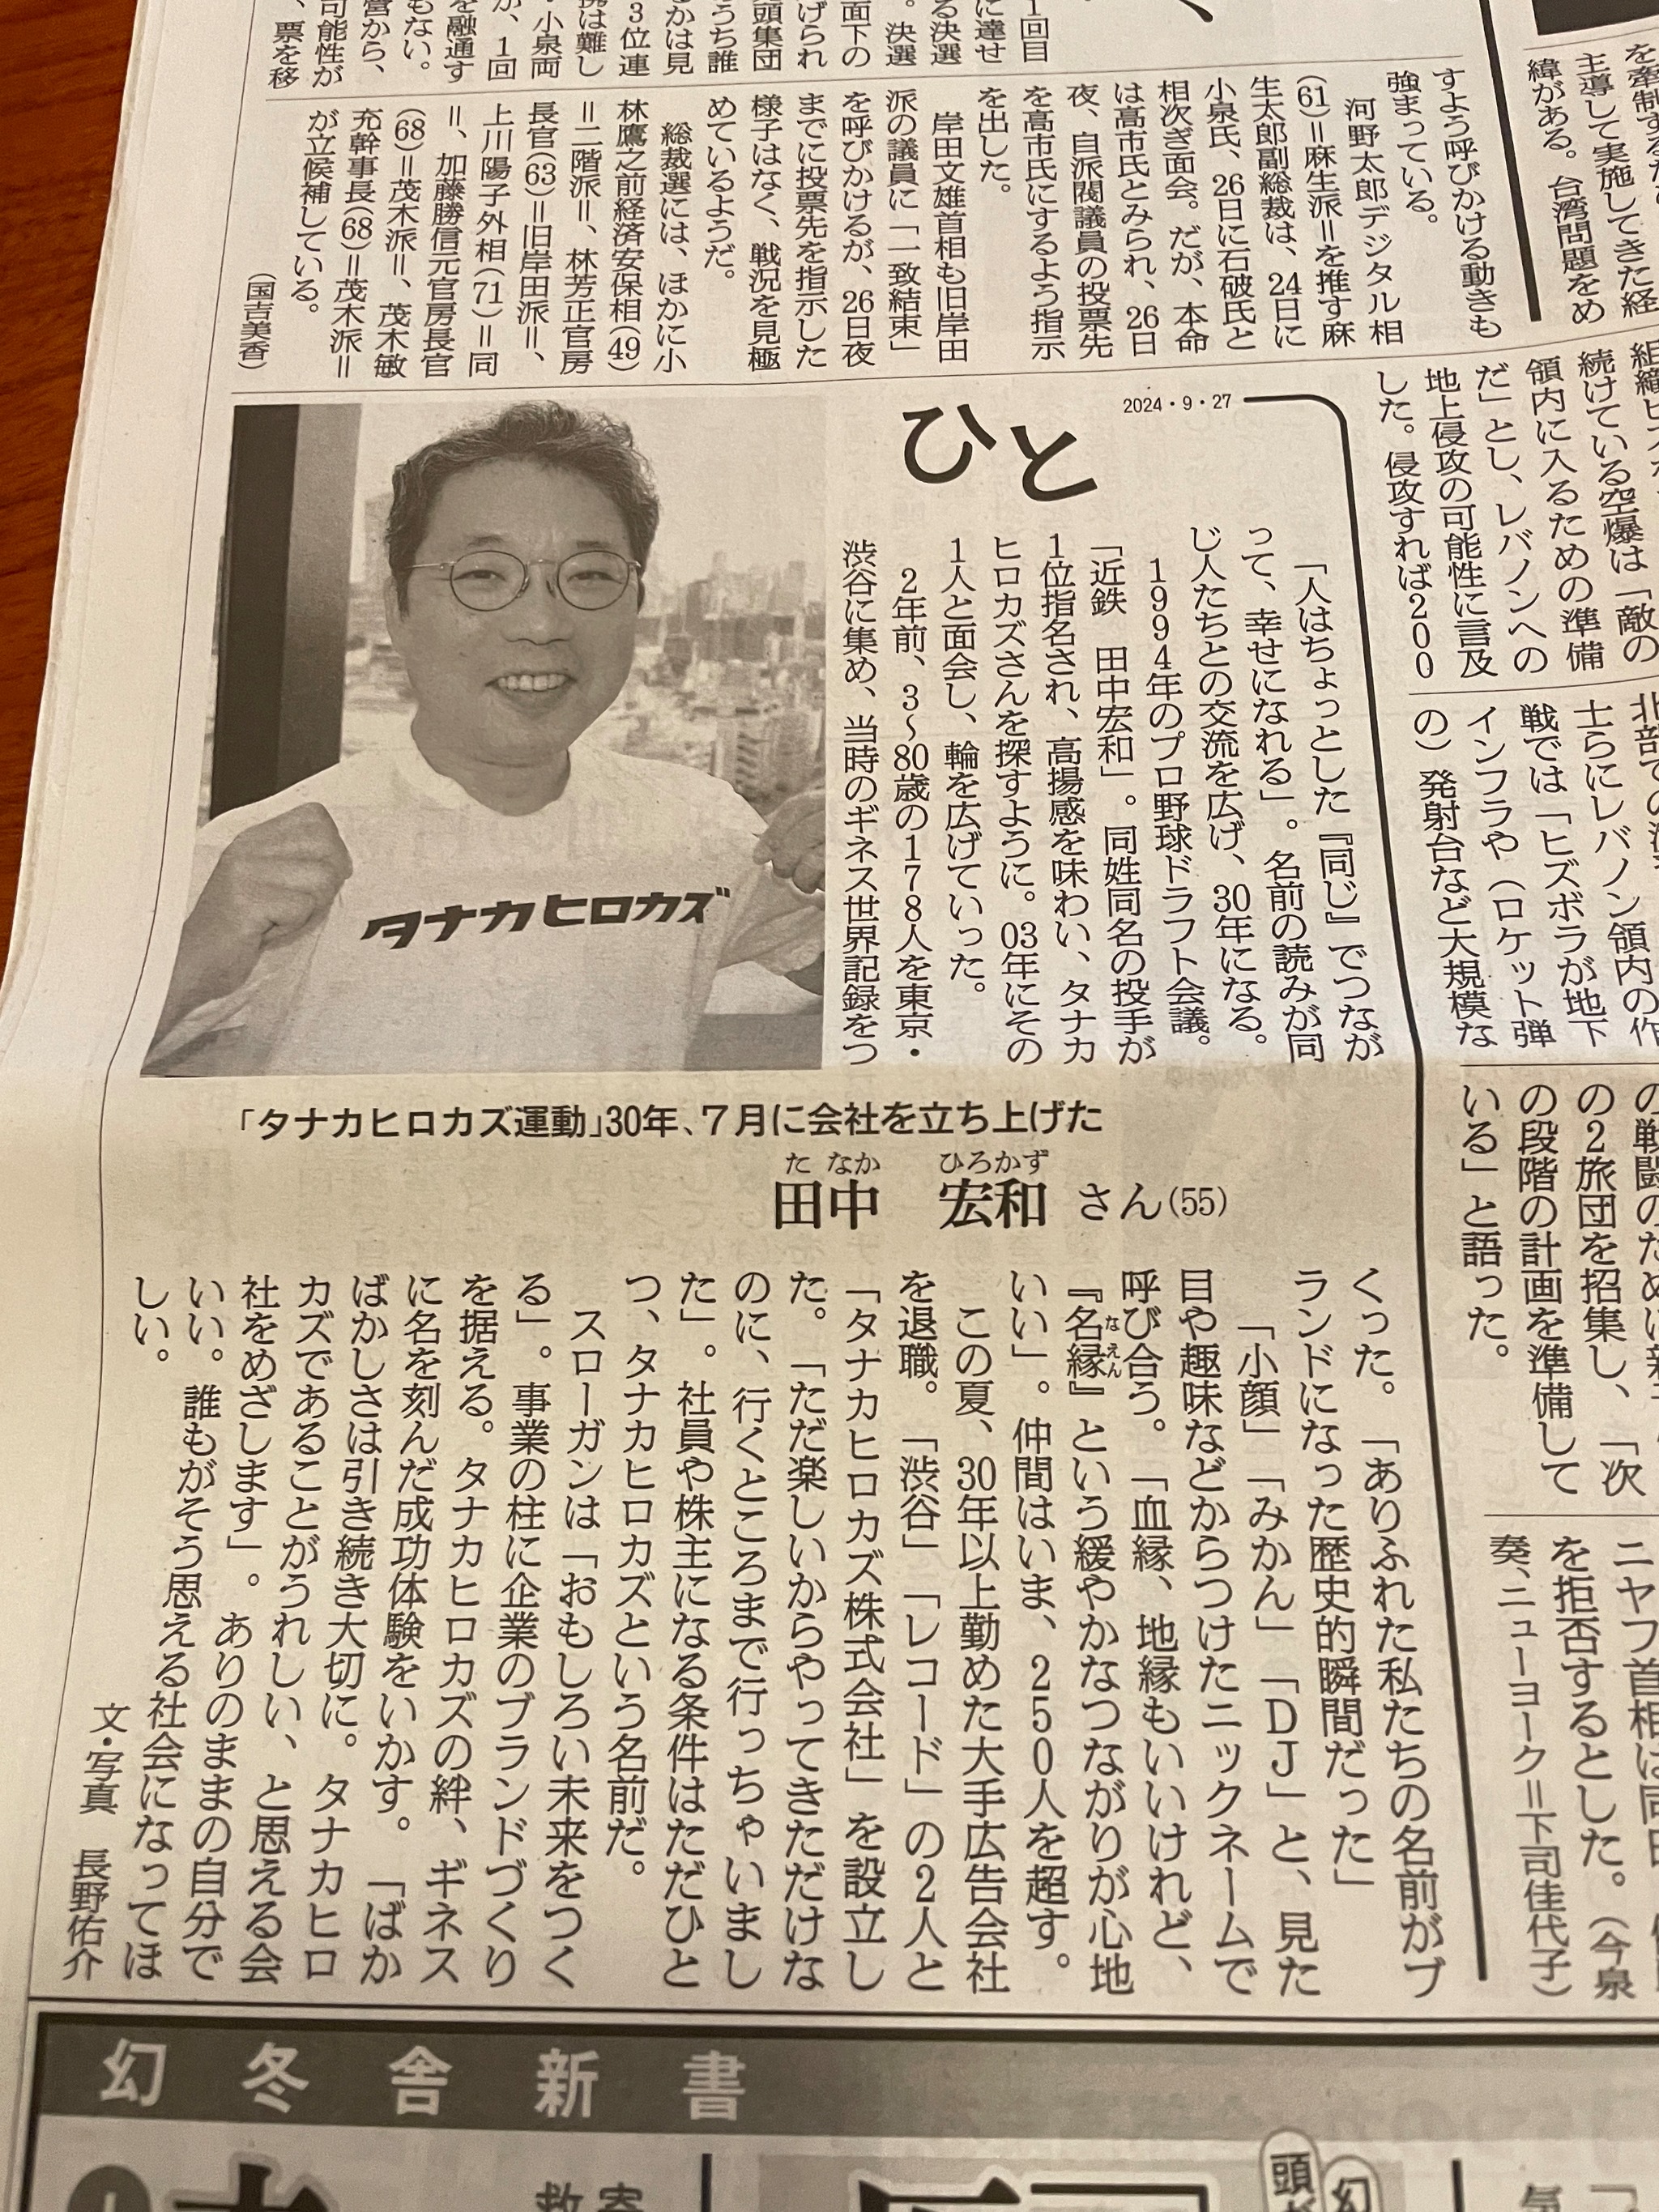 1回目
に達せ
る決選
。決選
面下の
げられ
頭集団
うち誰
かは見
3位連
携は難し
・小泉両
が、1回
を融通す
もない。
営から、
可能性が
、票を移
すよう呼びかける動きも
強まっている。
河野太郎デジタル相
(61)=麻生派=を推す麻
生太郎副総裁は、24日に
小泉氏、26日に石破氏と
相次ぎ面会。だが、本命
は高市氏とみられ、26日
夜、自派閥議員の投票先
を高市氏にするよう指示
を出した。
岸田文雄首相も旧岸田
派の議員に「一致結束」
を呼びかけるが、26日夜
までに投票先を指示した
様子はなく、戦況を見極
めているようだ。
総裁選には、ほかに小
林鷹之前経済安保相(49)
=二階派=、林芳正官房
長官(63)=旧岸田派=、
上川陽子外相(71)=同
=、加藤勝信元官房長官
(68)=茂木派=、茂木敏
充幹事長(68)=茂木派=
が立候補している。
(国吉美香)
を牽制する
主導して実施してきた経
緯がある。台湾問題をめ
続けている空爆は「敵の
領内に入るための準備
だ」とし、レバノンへの
地上侵攻の可能性に言及
した。侵攻すれば200
士らにレバノン領内の作
戦では「ヒズボラが地下
インフラや(ロケット弾
の)発射台など大規模な
の2旅団を招集し、「次
の段階の計画を準備して
いる」と語った。
ニヤフ首相は同日
を拒否するとした。(今泉
奏、ニューヨーク=下司佳代子)
2024・9・27
ひと
「人はちょっとした『同じ』でつなが
って、幸せになれる」。名前の読みが同
じ人たちとの交流を広げ、30年になる。
1994年のプロ野球ドラフト会議。
「近鉄 田中宏和」。同姓同名の投手が
1位指名され、高揚感を味わい、タナカ
ヒロカズさんを探すように。03年にその
1人と面会し、輪を広げていった。
2年前、3〜80歳の178人を東京・
渋谷に集め、当時のギネス世界記録をつ
タナカヒロカズ
「タナカヒロカズ運動」30年、7月に会社を立ち上げた
た なか ひろかず
田中 宏和 さん(55)
くった。「ありふれた私たちの名前がブ
ランドになった歴史的瞬間だった」
「小顔」「みかん」「DJ」と、見た
目や趣味などからつけたニックネームで
呼び合う。「血縁、地縁もいいけれど、
『名縁』という緩やかなつながりが心地
なえん
いい」。仲間はいま、250人を超す。
この夏、30年以上勤めた大手広告会社
を退職。「渋谷」「レコード」の2人と
「タナカヒロカズ株式会社」を設立し
た。「ただ楽しいからやってきただけな
のに、行くところまで行っちゃいまし
た」。社員や株主になる条件はただひと
つ、タナカヒロカズという名前だ。
スローガンは「おもしろい未来をつく
る」。事業の柱に企業のブランドづくり
を据える。タナカヒロカズの絆、ギネス
に名を刻んだ成功体験をいかす。「ばか
ばかしさは引き続き大切に。タナカヒロ
カズであることがうれしい、と思える会
社をめざします」。ありのままの自分で
いい。誰もがそう思える社会になってほ
しい。
文・写真 長野佑介
幻冬舎新書